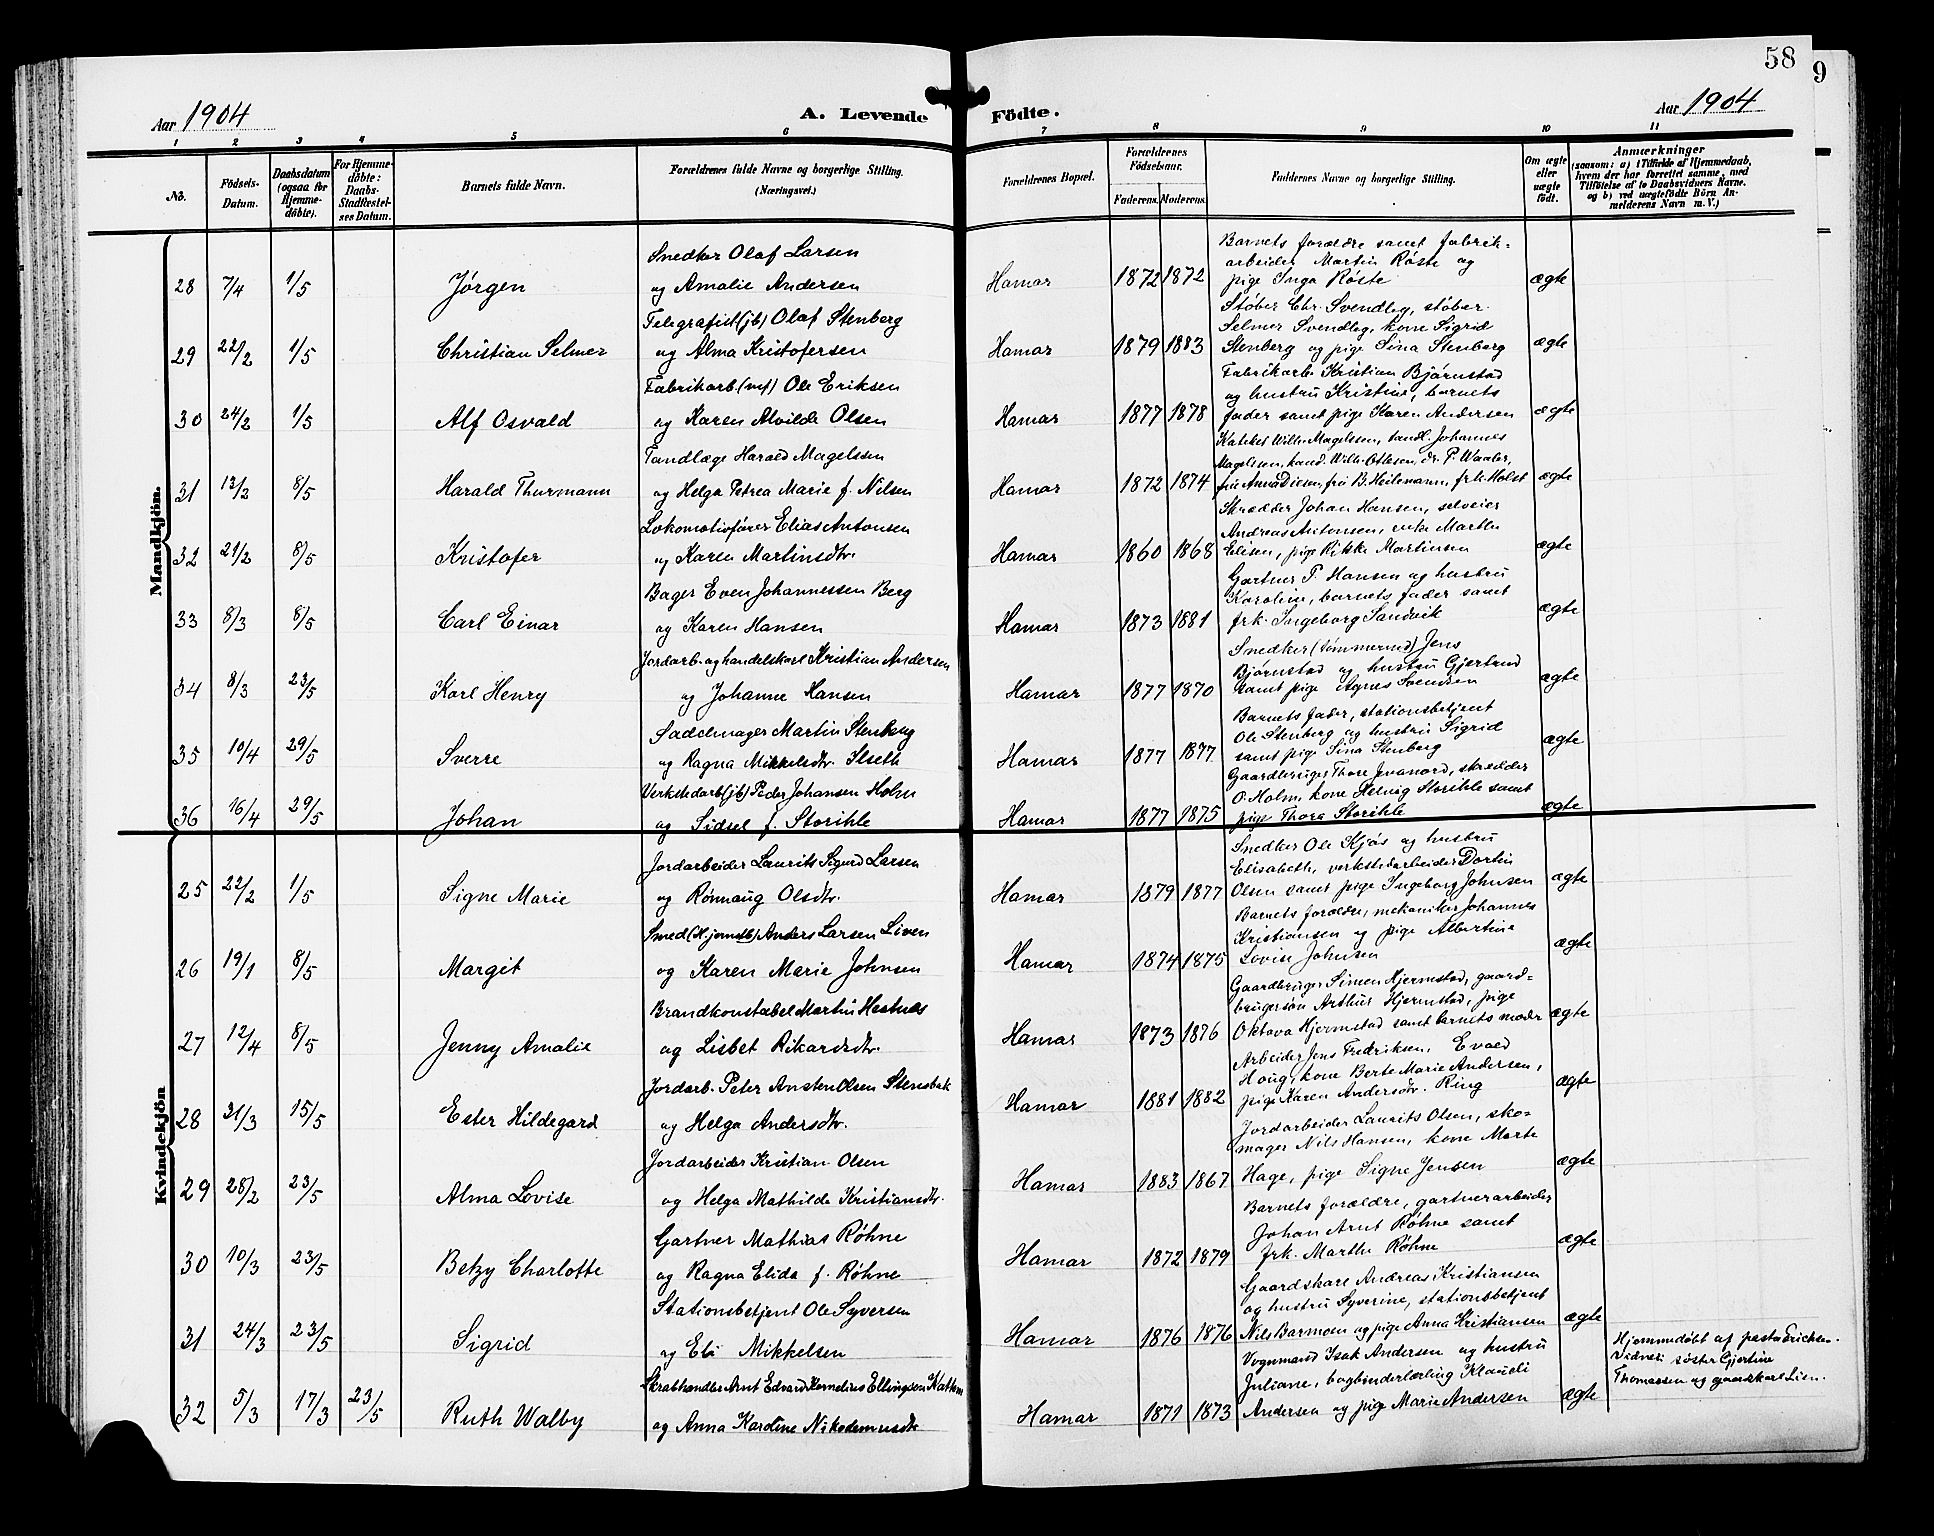 58
9
Aar 1904
A. Levende Födte.
Aar 1904
1 2 3 4 5 6 7 8 9 10 11
No.
Födsels-Datum.
Daabsdatum (ogsaa for Hjemmedöbte).
For Hjemmedöbte: Daabs-Stadfæstelses Datum.
Barnets fulde Navn.
Forældrenes fulde Navne og borgerlige Stilling.
(Næringsvei.)
Forældrenes Bopæl.
Forældrenes Födselsaar.
Faderens. Moderens.
Faddernes Navne og borgerlige Stilling.
Om ægte eller uægte födt.
Anmærkninger
(saasom: a) i Tilfælde af Hjemmedaab, hvem der har forrettet samme, med Tilföielse af to Daabsvidners Navne, og b) ved uægtefödte Börn Anmelderens Navn m. V.)
Mandkjön.
Snedker Olaf Larsen
28 7/4 1/5 Jørgen og Amalie Andersen Hamar 1872 1872
Barnets forældre samt fabrik-
arbeider Martin Røste og
pige Inga Røste ægte
Telegrafist (jb) Olaf Stenberg
29 22/2 1/5 Christian Selmer og Alma Kristofersen Hamar 1879 1883
Støber Chr. Svendleg, støber
Selmer Svendleg, kone Sigrid
Stenberg og pige Sina Stenberg ægte
Fabrikarb (mf) Ole Eriksen
30 24/2 1/5 Alf Osvald og Karen Alvilde Olsen Hamar 1877 1878
Fabrikarb. Kristian Bjørnstad
og hustru Kristine, barnets
fader samt pige Karen Andersen ægte
Tandlæge Harald Magelssen
31 12/2 8/5 Harald Thurmann og Helga Petrea Marie f. Nilsen Hamar 1872 1874
Kateket Wilh. Magelssen, tandl. Johannes
Magelssen, kand. Wilh. Ottesen, dr. P. Waaler,
fru Anna Diesen, fru B. Heilemann, frk. Holst ægte
Lokomotivfører Elias Antonsen
32 21/2 8/5 Kristofer og Karen Martinsdtr. Hamar 1860 1868
Skrædder Johan Hansen, selveier
Andreas Antonsen, enke Marthe
Elisen, pige Rikke Martinsen ægte
Bager Even Johannessen Berg
33 8/3 8/5 Carl Einar og Karen Hansen Hamar 1873 1881
Gartner P. Hansen og hustru
Karoline, barnets fader samt
frk. Ingeborg Sandvik ægte
Jordarb. og handelskarl Kristian Andersen
34 8/3 23/5 Karl Henry og Johanne Hansen Hamar 1877 1870
Snedker (tømmermd) Jens
Bjørnstad og hustru Gjertrud
samt pige Agnes Svendsen ægte
Sadelmager Martin Stenberg
35 10/4 29/5 Sverre og Ragna Mikkelsdtr. Ilseth Hamar 1877 1877
Barnets fader, stationsbetjent
Ole Stenberg og hustru Sigrid
samt pige Sina Stenberg ægte
Verkstedarb (jb) Peder Johansen Holm
36 16/4 29/5 Johan og Sidsel f. Storihle Hamar 1877 1875
Gaardbruger Thore Jevanord, skrædder
O. Holm, kone Helvig Storihle samt
pige Thora Storihle ægte
Kvindekjön
Jordarbeider Laurits Sigurd Larsen
25 22/2 1/5 Signe Marie og Rønnaug Olsdtr. Hamar 1879 1877
Snedker Ole Kjøs og hustru
Elisabeth, verkstedarbeider Dortin
Olsen samt pige Ingeborg Johnsen ægte
Smed (H. jernstb) Anders Larsen Liven
26 19/1 8/5 Margit og Karen Marie Johnsen Hamar 1874 1875
Barnets forældre, mekaniker Johannes
Kristiansen og pige Albertine
Lovise Johnsen ægte
Brandkonstabel Martin Hestnes
27 12/4 8/5 Jenny Amalie og Lisbet Rikardsdtr. Hamar 1873 1876
Gaardbruger Simen Hjermstad, gaard-
brugersøn Arthur Hjermstad, pige
Oktava Hjermstad samt barnets moder ægte
Jordarb. Peter Ansten Olsen Stensbak
28 31/3 15/5 Ester Hildegard og Helga Andersdtr. Hamar 1881 1882
Arbeider Jens Fredriksen, Evald
Houg, kone Berte Marie Andersen,
pige Karen Andersdtr. Ring ægte
Jordarbeider Kristian Olsen
29 28/2 23/5 Alma Lovise og Helga Mathilde Kristiansdtr. Hamar 1883 1867
Jordarbeider Laurits Olsen, sko-
mager Nils Hansen, kone Marte
Hage, pige Signe Jensen ægte
Gartner Mathias Røhne
30 10/3 23/5 Betzy Charlotte og Ragna Elida f. Røhne Hamar 1872 1879
Barnets forældre, gartnerarbeider
Johan Arnt Røhne samt
frk. Marthe Røhne ægte
Stationsbetjent Ole Syversen
31 24/3 23/5 Sigrid og Eli Mikkelsen Hamar 1876 1876
Gaardskare Andreas Kristiansen
og hustru Syverine, stationsbetjent
Nils Barmoen og pige Anna Kristiansen ægte
Skrabhandler Arnt Edvard Kornelius Ellingsen Katten
32 5/3 17/3 23/5 Ruth Walby og Anna Karoline Nikodemusdtr. Hamar 1871 1873
Vognmand Isak Andersen og hustru
Juliane, bogbinderlærling Klaudi
Andersen og pige Marie Andersen ægte
Hjemmedøbt af pastor Erichsen.
Vidner: søster Gjertine
Thomassen og gaardskarl Lien.